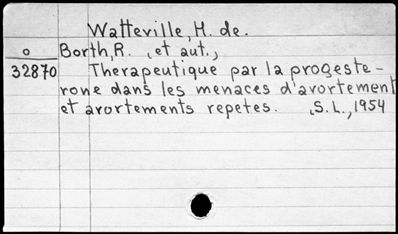 Watteville, H. de.
o Borth, R. , et aut.,
32870 Therapeutique par la progeste-
rone dans les menaces d'avortement
et avortements repetes. , S. L., 1954